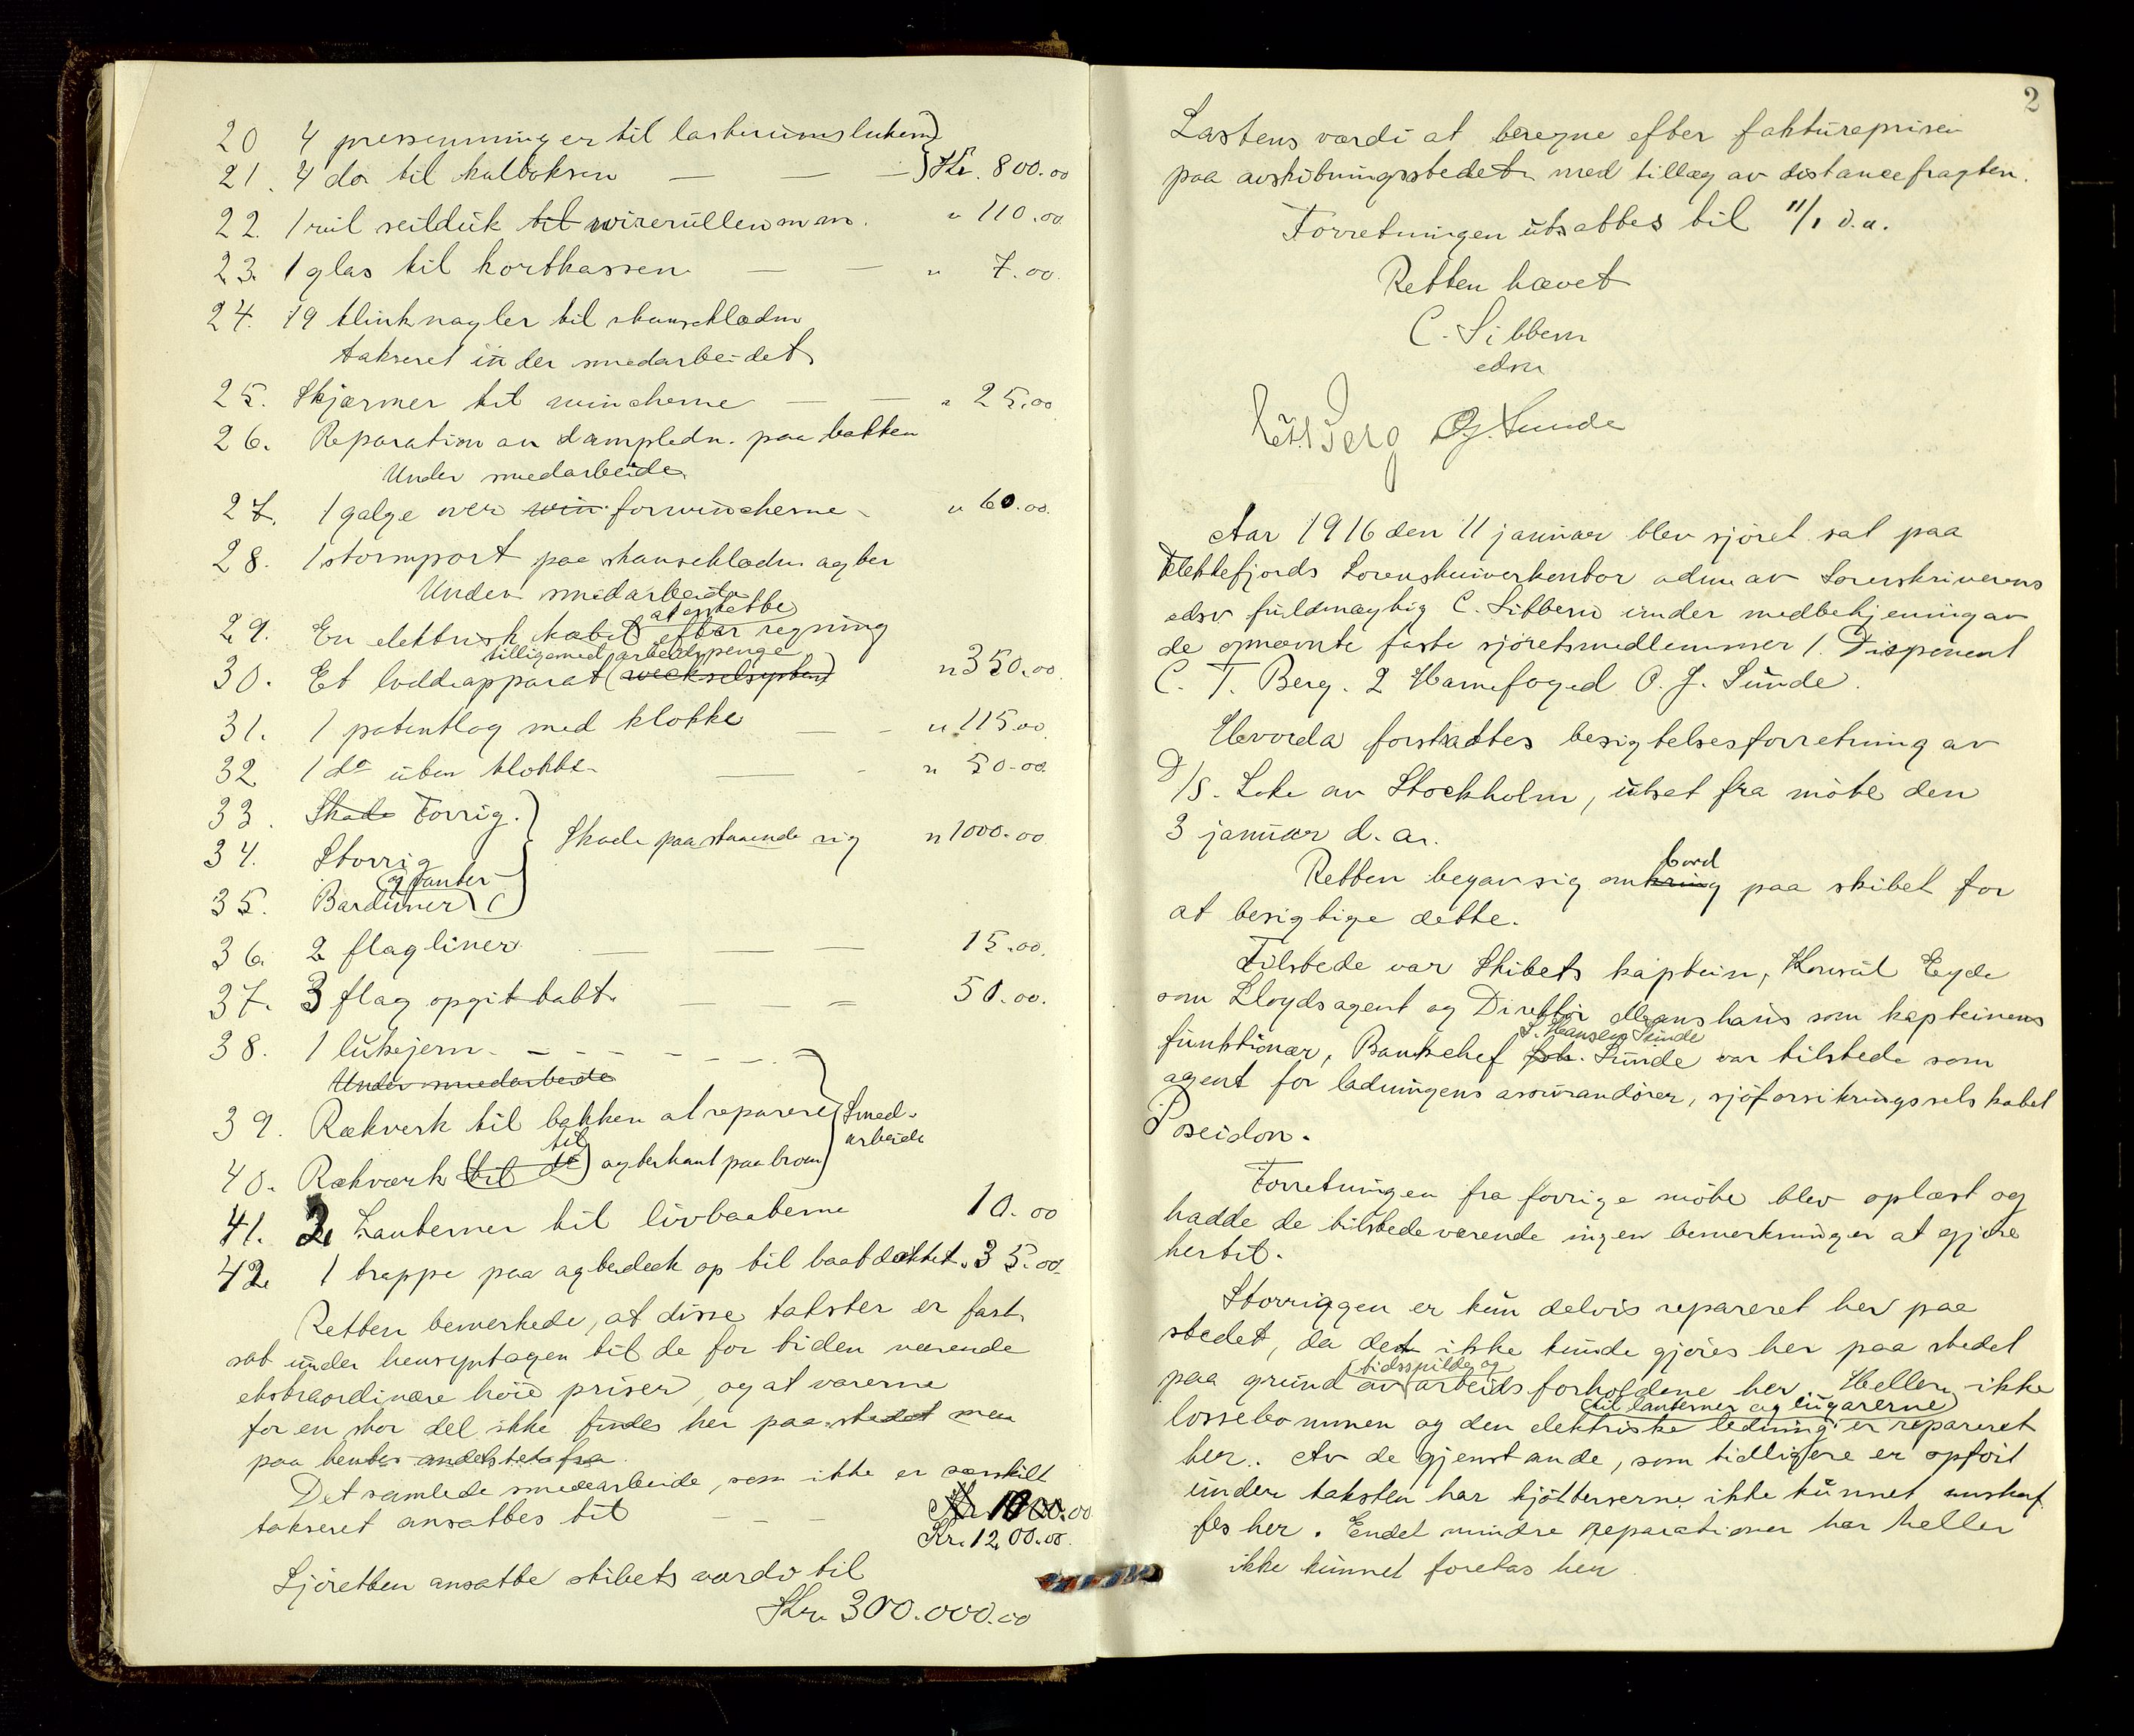 20 4 pressenninger til lasterumslukene
21. 4 do til kulboksen — — — Kr. 800.00
22. 1 rul seilduk til wirerullen m.m. " 110.00
23. 1 glas til kortkassen — — " 7.00
24. 19 klinknagler til skanseklædn
takseret under smedarbeidet
25. Skjærmer til wincherne — — " 25.00
26. Reparation av dampledn. paa bakken
Under smedarbeide
27. 1 galge over win forwincherne - " 60.00.
28. 1 stormport paa skanseklædn agter
Under smedarbeide
at ansætte
29. En elektrisk kabel efter regning
tilligemed arbeidspenge
30. Et loddeapparat (weckselsystem) " 350.00.
31. 1 patentlog med klokke — - " 115.00.
32 1 do uben klokke — - " 50.00.
33. Skade Forrig.
34. Storrig Skade paa staaende rig " 1000.00
og vanter
35. Barduner
36. 2 flagliner — — — 15.00.
37. 3 flag opgit tabt. — — — 50.00.
38. 1 lukejern - - - - - -
Under smedarbeide
39. Rækverk til bakken at reparere Smed-
arbeide
til
40. Rækværk (til do) agterkant paa broen
41. 2 Lanterner til livbaaterne 10.00
42. 1 trappe paa agterdeck op til baatdækket " 35.00
Retten bemerkede, at disse takster er fast
sat under hensyntagen til de for tiden værende
ekstraordinære høie priser, og at varerne
for en stor del ikke findes her paa stedet men
paa hentes andetsteds fra.
Det samlede smedearbeide, som ikke er særskilt
takseret ansattes til — — — Kr 1000.00
Kr. 1200.00.
Sjøretten ansatte skibets værdi til
Kr. 300.000.00
2
Lastens værdi at beregne efter faktureprisen
paa avskibningsstedet med tillæg av distancefragten.
Forretningen utsattes til 11/1 d.a.
Retten hævet
C. Sibbern
edsv
C.T. Berg O.J. Sunde
Aar 1916 den 11 januar blev sjøret sat paa
Flekkefjords Sorenskriverkontor adm. av Sorenskriverens
edsv fuldmægtig C. Sibbern under medbetjening av
de opnævnte faste sjøretsmedlemmer 1. Disponent
C. T. Berg. 2 Havnefoged O. J. Sunde.
Hvorda forstadtes besigtelsesforretning av
D/S. Loke av Stockholm, utsat fra møte den
3 januar d. a.
bord
Retten begav sig omkring paa skibet for
at besigtige dette.
Tilstede var Skibets kaptein, Konsul Eyde
som Lloydsagent og Direktør Manshaus som kapteinens
S. Hansen Sunde
funktionær, Bankchef Joh. Sunde var tilstede som
agent for ladningens assurandører, sjøforsikringsselskabet
Poseidon.
Forretningen fra forrige møte blev oplæst og
hadde de tilstedeværende ingen bemerkninger at gjøre
hertil.
Storriggen er kun delvis repareret her paa
stedet, da det ikke kunde gjøres her paa stedet
tidsspilde og
paa grund av arbeidsforholdene her. Heller ikke
til lanterner og lugarerne
lossebommen og den elektriske ledning er repareret
her. Av de gjenstande, som tidligere er opført
under taksten har kjøtterserne ikke kunnet anskaf
fes her. Endel mindre reparationer har heller
ikke kunnet foretas her